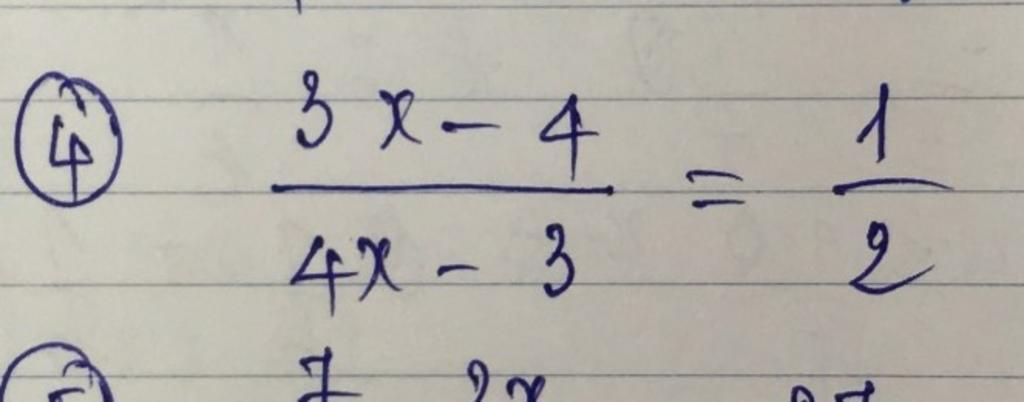 ④ 3x - 4 / 4x - 3 = 1 / 2